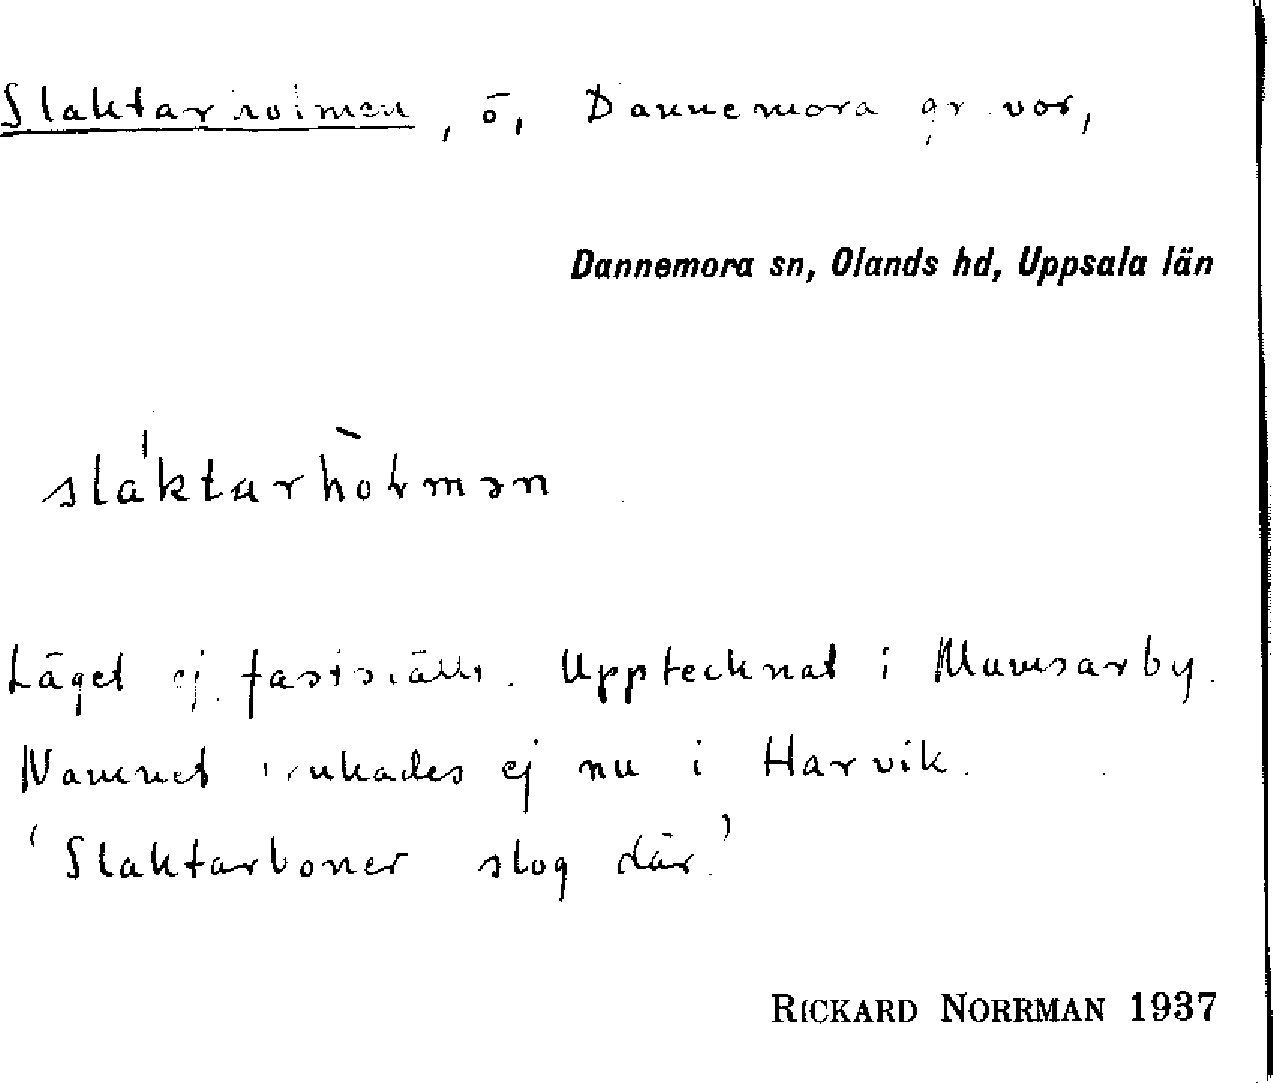 Slaktarholmen, ö, Dannemora gruvor,
Dannemora sn, Olands hd, Uppsala län
slaktarholmən
Läget ej fastställt. Upptecknat i Mumsarby.
Namnet brukades ej nu i Harvik.
'Slaktarboner slog där.'
RICKARD NORRMAN 1937